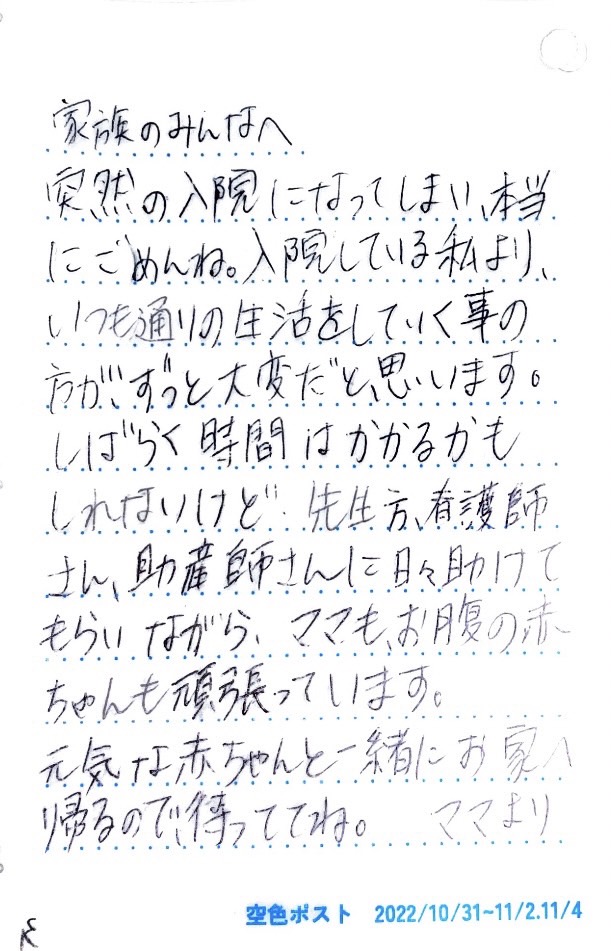 家族のみんなへ
突然の入院になってしまい、本当
にごめんね。入院している私より、
いつも通りの生活をしていく事の
方が、ずっと大変だと、思います。
しばらく時間はかかるかも
しれないけど、先生方、看護師
さん、助産師さんに日々助けて
もらいながら、ママも、お腹の赤
ちゃんも頑張っています。
元気な赤ちゃんと一緒にお家へ
帰るので、待っててね。 ママより
空色ポスト 2022/10/31~11/2.11/4